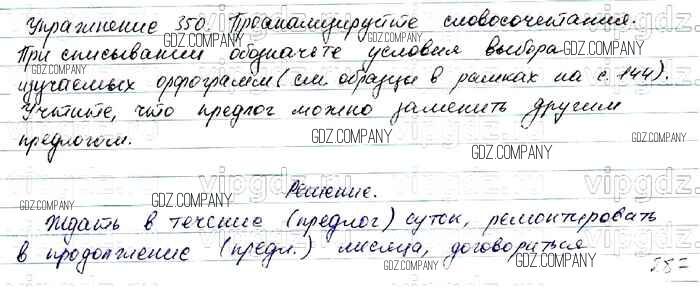 Упражнение 350. Проанализируйте словосочетания.
При списывании обозначьте условия выбора
изучаемых орфограмм (см. образцы в рамках на с. 144).
Учтите, что предлог можно заменить другим
предлогом.
Решение.
Ждать в течение (предлог) суток, ремонтировать
в продолжение (предл.) месяца, договориться
GDZ.COMPANY
GDZ.COMPANY
GDZ.COMPANY
GDZ.COMPANY
GDZ.COMPANY
GDZ.COMPANY
GDZ.COMPANY
GDZ.COMPANY
GDZ.COMPANY
GDZ.COMPANY
GDZ.COMPANY
GDZ.COMPANY